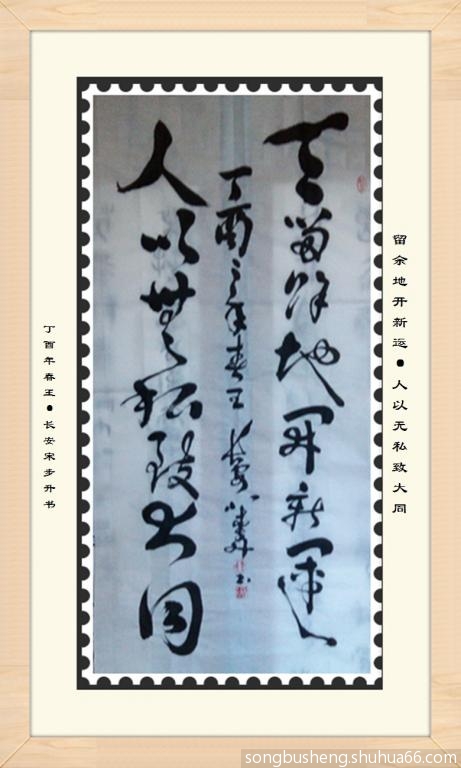 留余地开新运●人以无私致大同
天留馀地開新運
丁酉之年春王長安
人以無私致大同
丁酉年春王●长安宋步升书
songbusheng.shuhua66.com